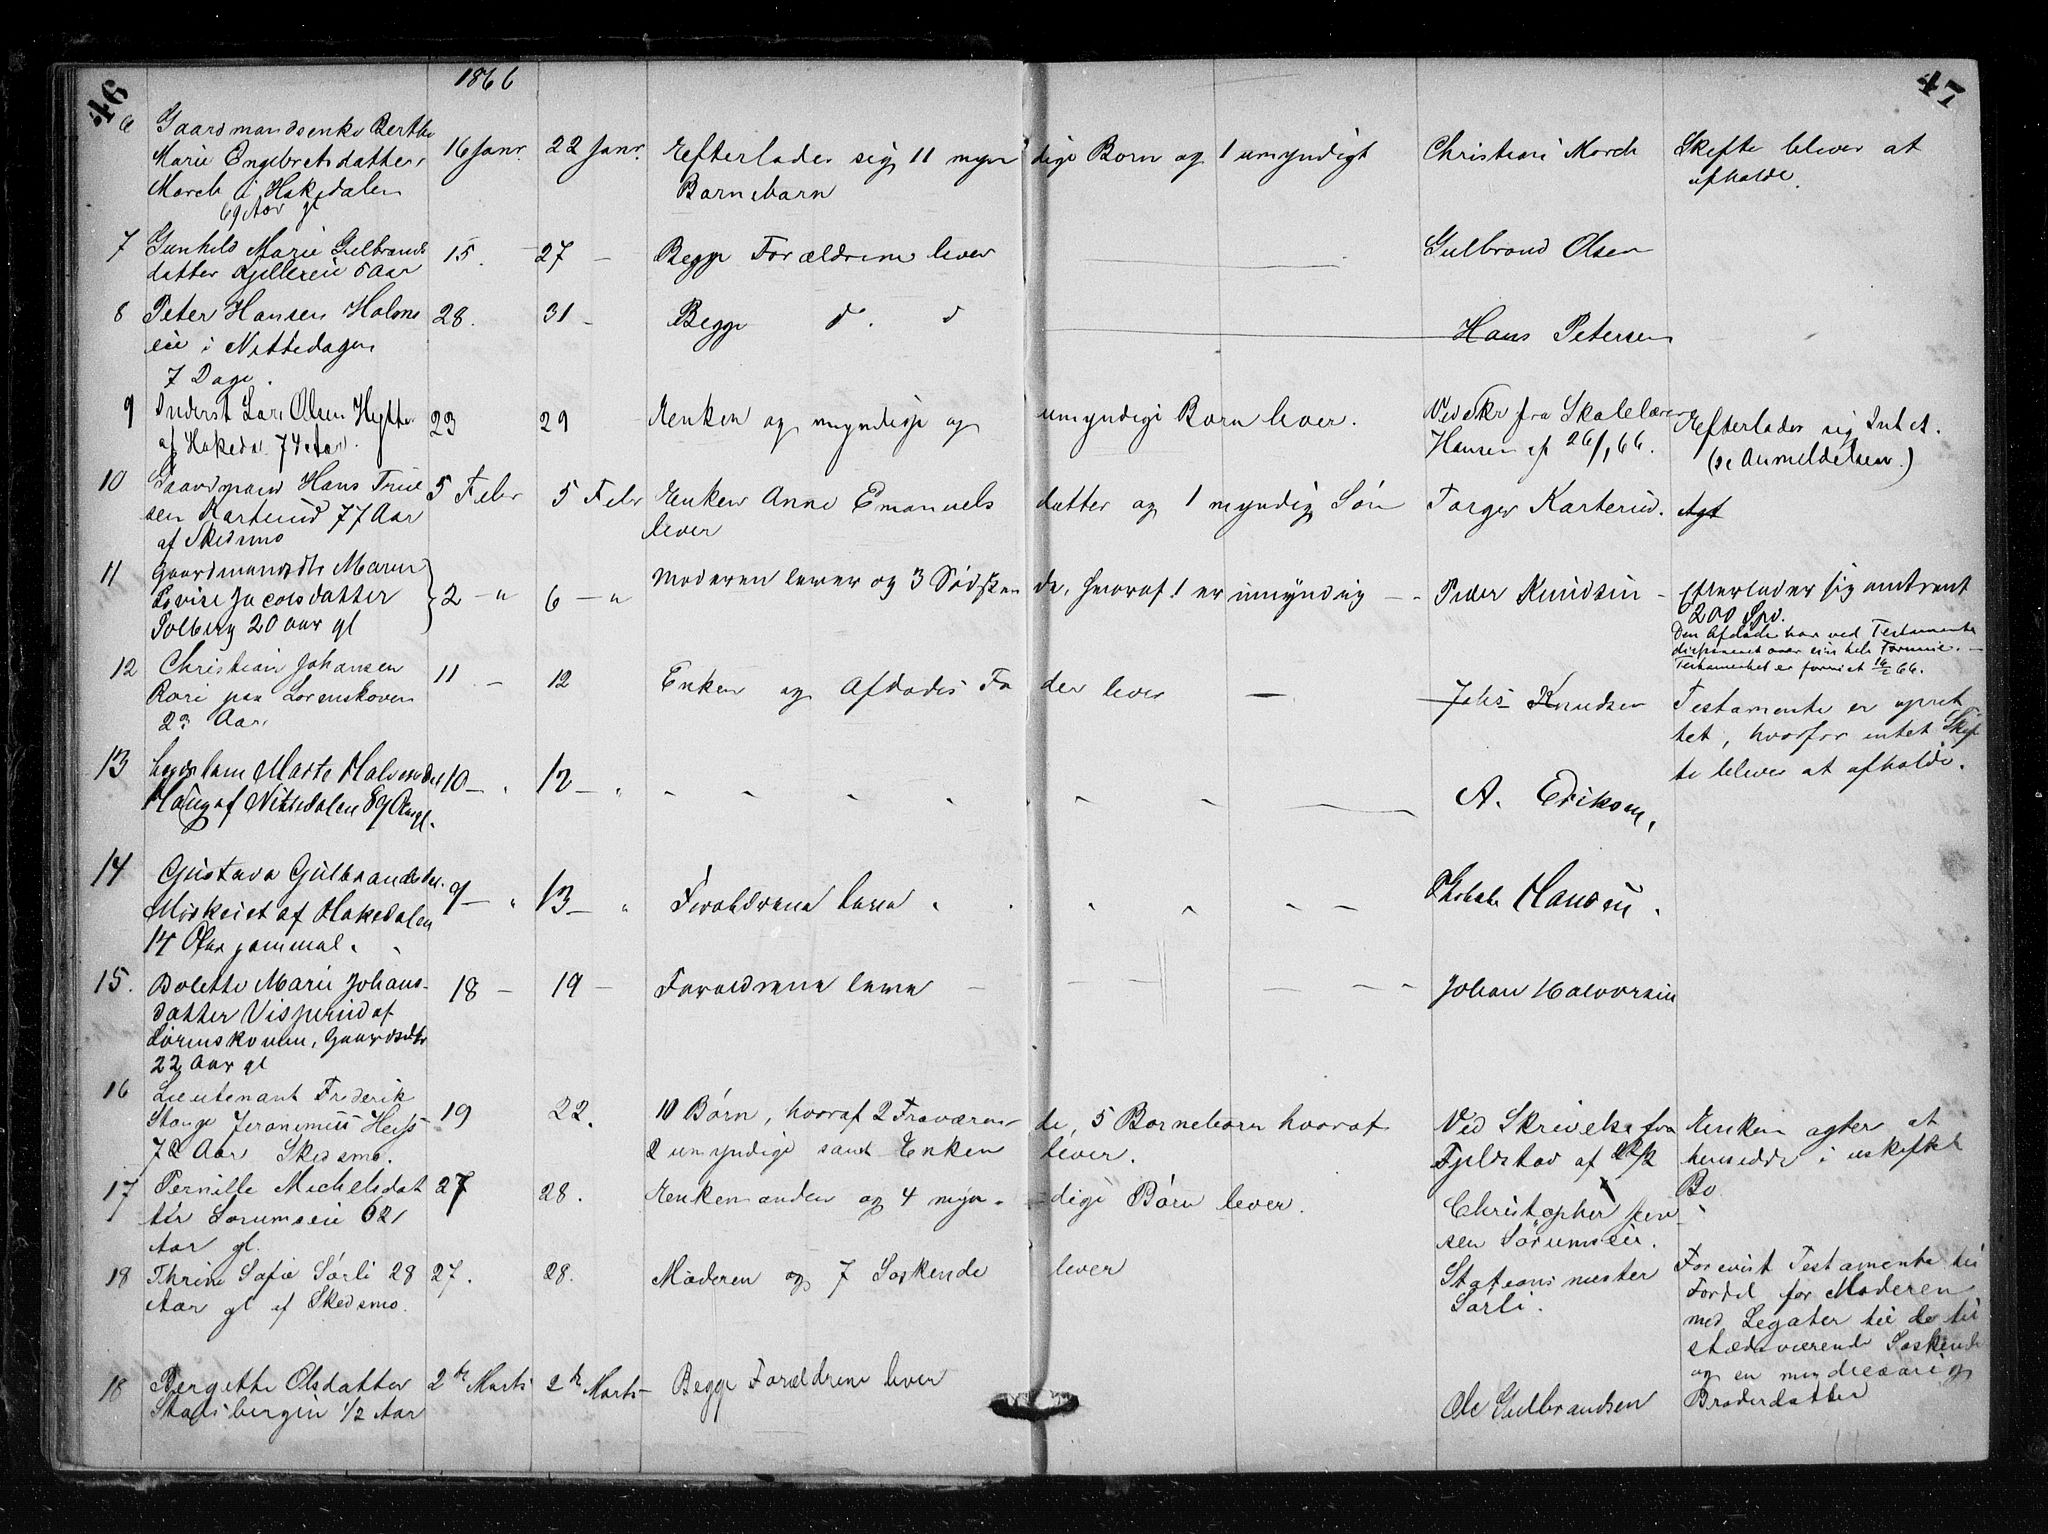 46
47
1866
6 Gaardmandsenke Berthe
Marie Engebretsdatter
March i Hakedalen
69 Aar gl
16 Janr. 22 Janr. Efterlader sig 11 myn dige Born og 1 umyndigt
Barnebarn
Christian March
Skifte bliver at
afholde.
7 Gunhild Marie Gulbrands
datter Kjellereie 5 Aar
15. 27 – Begge Forældrene lever
Gulbrand Olsen
8 Peter Hansen Holm
eie i Nittedagen
7 Dage.
28. 31 – Begge d. d
Hans Petersen
9 Inderst Lars Olsen Hytte
af Hakeda. 74 Aar.
23 29 Enken og myndige og umyndige Born lever.
Ved Skr fra Skolelærer
Hansen af 26/1 66.
Efterlader sig Intet.
(se Anmeldelsen.)
10 Gaardmand Hans True
sen Karterud 77 Aar
af Skedsmo
5 Febr 5 Febr Enken Anne Emanuels datter og 1 myndig Sön
lever
Torger Karterud.
11 Gaardmandsdtr Maren
Lovise Jacobsdatter
Solberg 20 aar gl
2 – " 6 – " Moderen lever og 3 Södsken de, hvoraf 1 er umyndig –
Peder Knudsen –
Efterlader sig omtrent
200 Spd.
Den Afdøde har ved Testamente
disponeret over sin hele Formue. –
Testamentet er forevist 16/2 66.
12 Christian Johansen
Rori paa Lorenskoven
23 Aar.
11 – 12 Enken og Afdødes Fa der lever –
Johs Knudsen
Testamente er opret
tet, hvorfor intet Skif
te bliver at afholde.
13 Lægdslem Marte Halvorsdat
Haug af Nittedalen 89 Aar gl.
10 – " 12 – "
A. Erikson.
14 Gustava Gulbrandsdat.
Mörkeiet af Hakedalen
14 Aar gammal.
9 – " 13 – " Foraldrene leve
Hansen.
15. Bolette Marie Johans-
datter Visperud af
Lörenskoven, Gaardsdtr
22 Aar gl
18 – 19 – Foraldrene leve
Johan Halvorsen
16 Lieutenant Frederik
Stange Jeronimus Heiss
72 Aar Skedsmo.
19 22. 10 Börn, hvoraf 2 Fraværen- de, 5 Borneborn hvoraf
2 umyndige samt Enken lever.
Ved Skrivelse fra
Fjeldstad af 22/2
Enken agter at
hensidde i uskiftet
Bo
17 Pernille Michelsdat
ter Sorumseie 62
Aar gl.
27 28. Enkemanden og 4 myn- dige Börn lever.
Christopher Jen
sen Sörumseie.
18 Thrine Sofie Sörli 28
Aar gl af Skedsmo.
27. 28. Moderen og 7 Soskende lever
Stationsmester
Sorli.
Forevist Testamente til
Fordel for Moderen
med Legater til de til
stædeværende Soskende
og en mindreaarig
Broderdatter
18 Bergitte Olsdatter
Stalsbergeie 1/2 Aar
2de Marts 2de Marts – Begge Forældrene lever
Ole Gulbrandsen